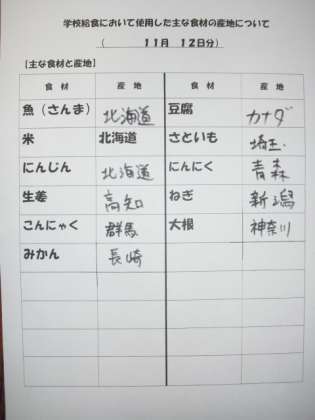 学校給食において使用した主な食材の産地について
( 11月 12日分)
【主な食材と産地】
食材 産地 食材 産地
魚(さんま) 北海道 豆腐 カナダ
米 北海道 さといも 埼玉
にんじん 北海道 にんにく 青森
生姜 高知 ねぎ 新潟
こんにゃく 群馬 大根 神奈川
みかん 長崎